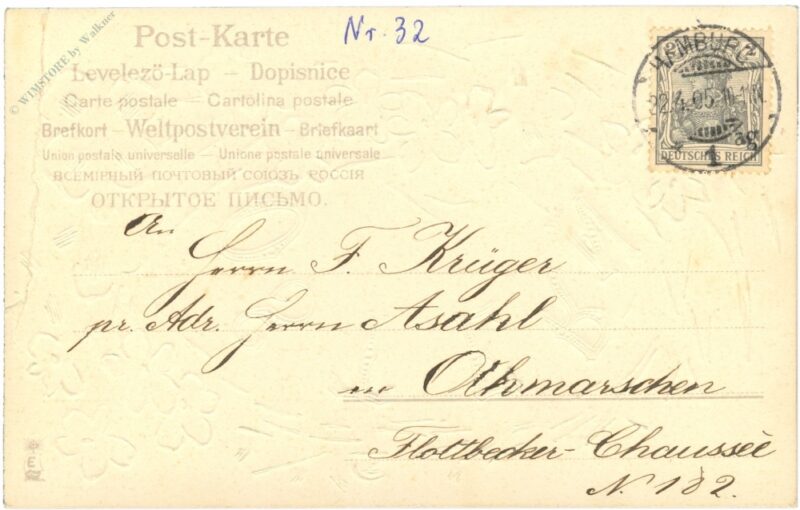 Nr. 32
Post-Karte
Levelezö-Lap – Dopisnice
Carte postale – Cartolina postale
Brefkort – Weltpostverein – Briefkaart
Union postale universelle – Unione postale universale
ВСЕМІРНЫЙ ПОЧТОВЫЙ СОЮЗЪ. РОССІЯ
ОТКРЫТОЕ ПИСЬМО.
© WIMSTORE by Walkner
HAMBURG
22.4.05
1
DEUTSCHES REICH
An
Herrn F. Krüger
pr. Adr. Herrn Asahl
in Othmarschen
Flottbecker-Chaussée
N. 132.